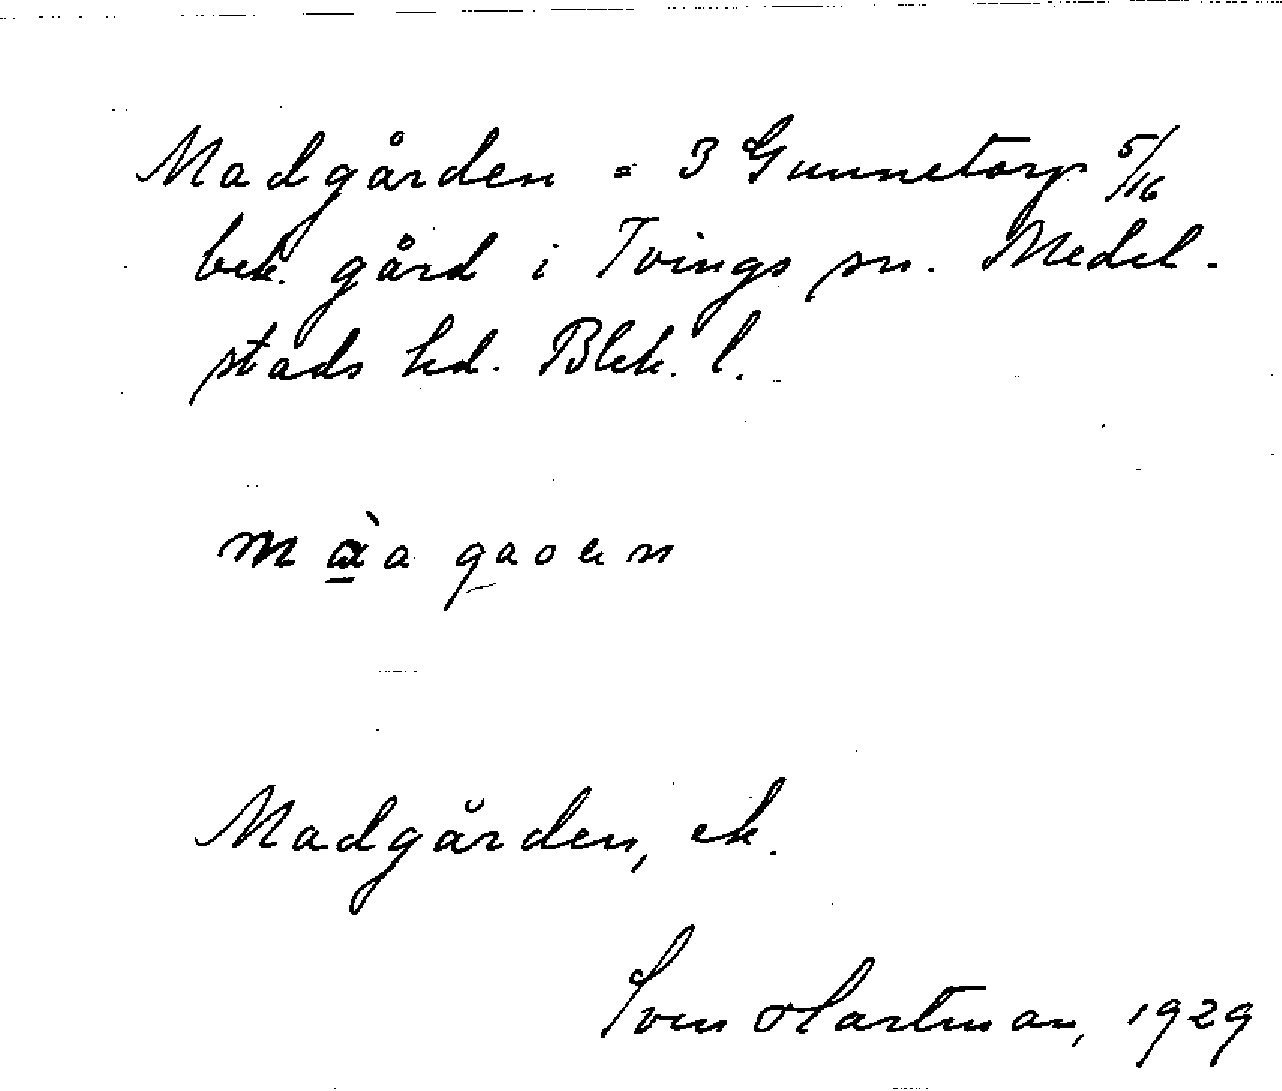 Madgården = 3 Gunnetorp 5/16
bek. gård i Tvings sn. Medel-
stads hd. Blek. l.
Madgården, ek.
Sven Hartman, 1929